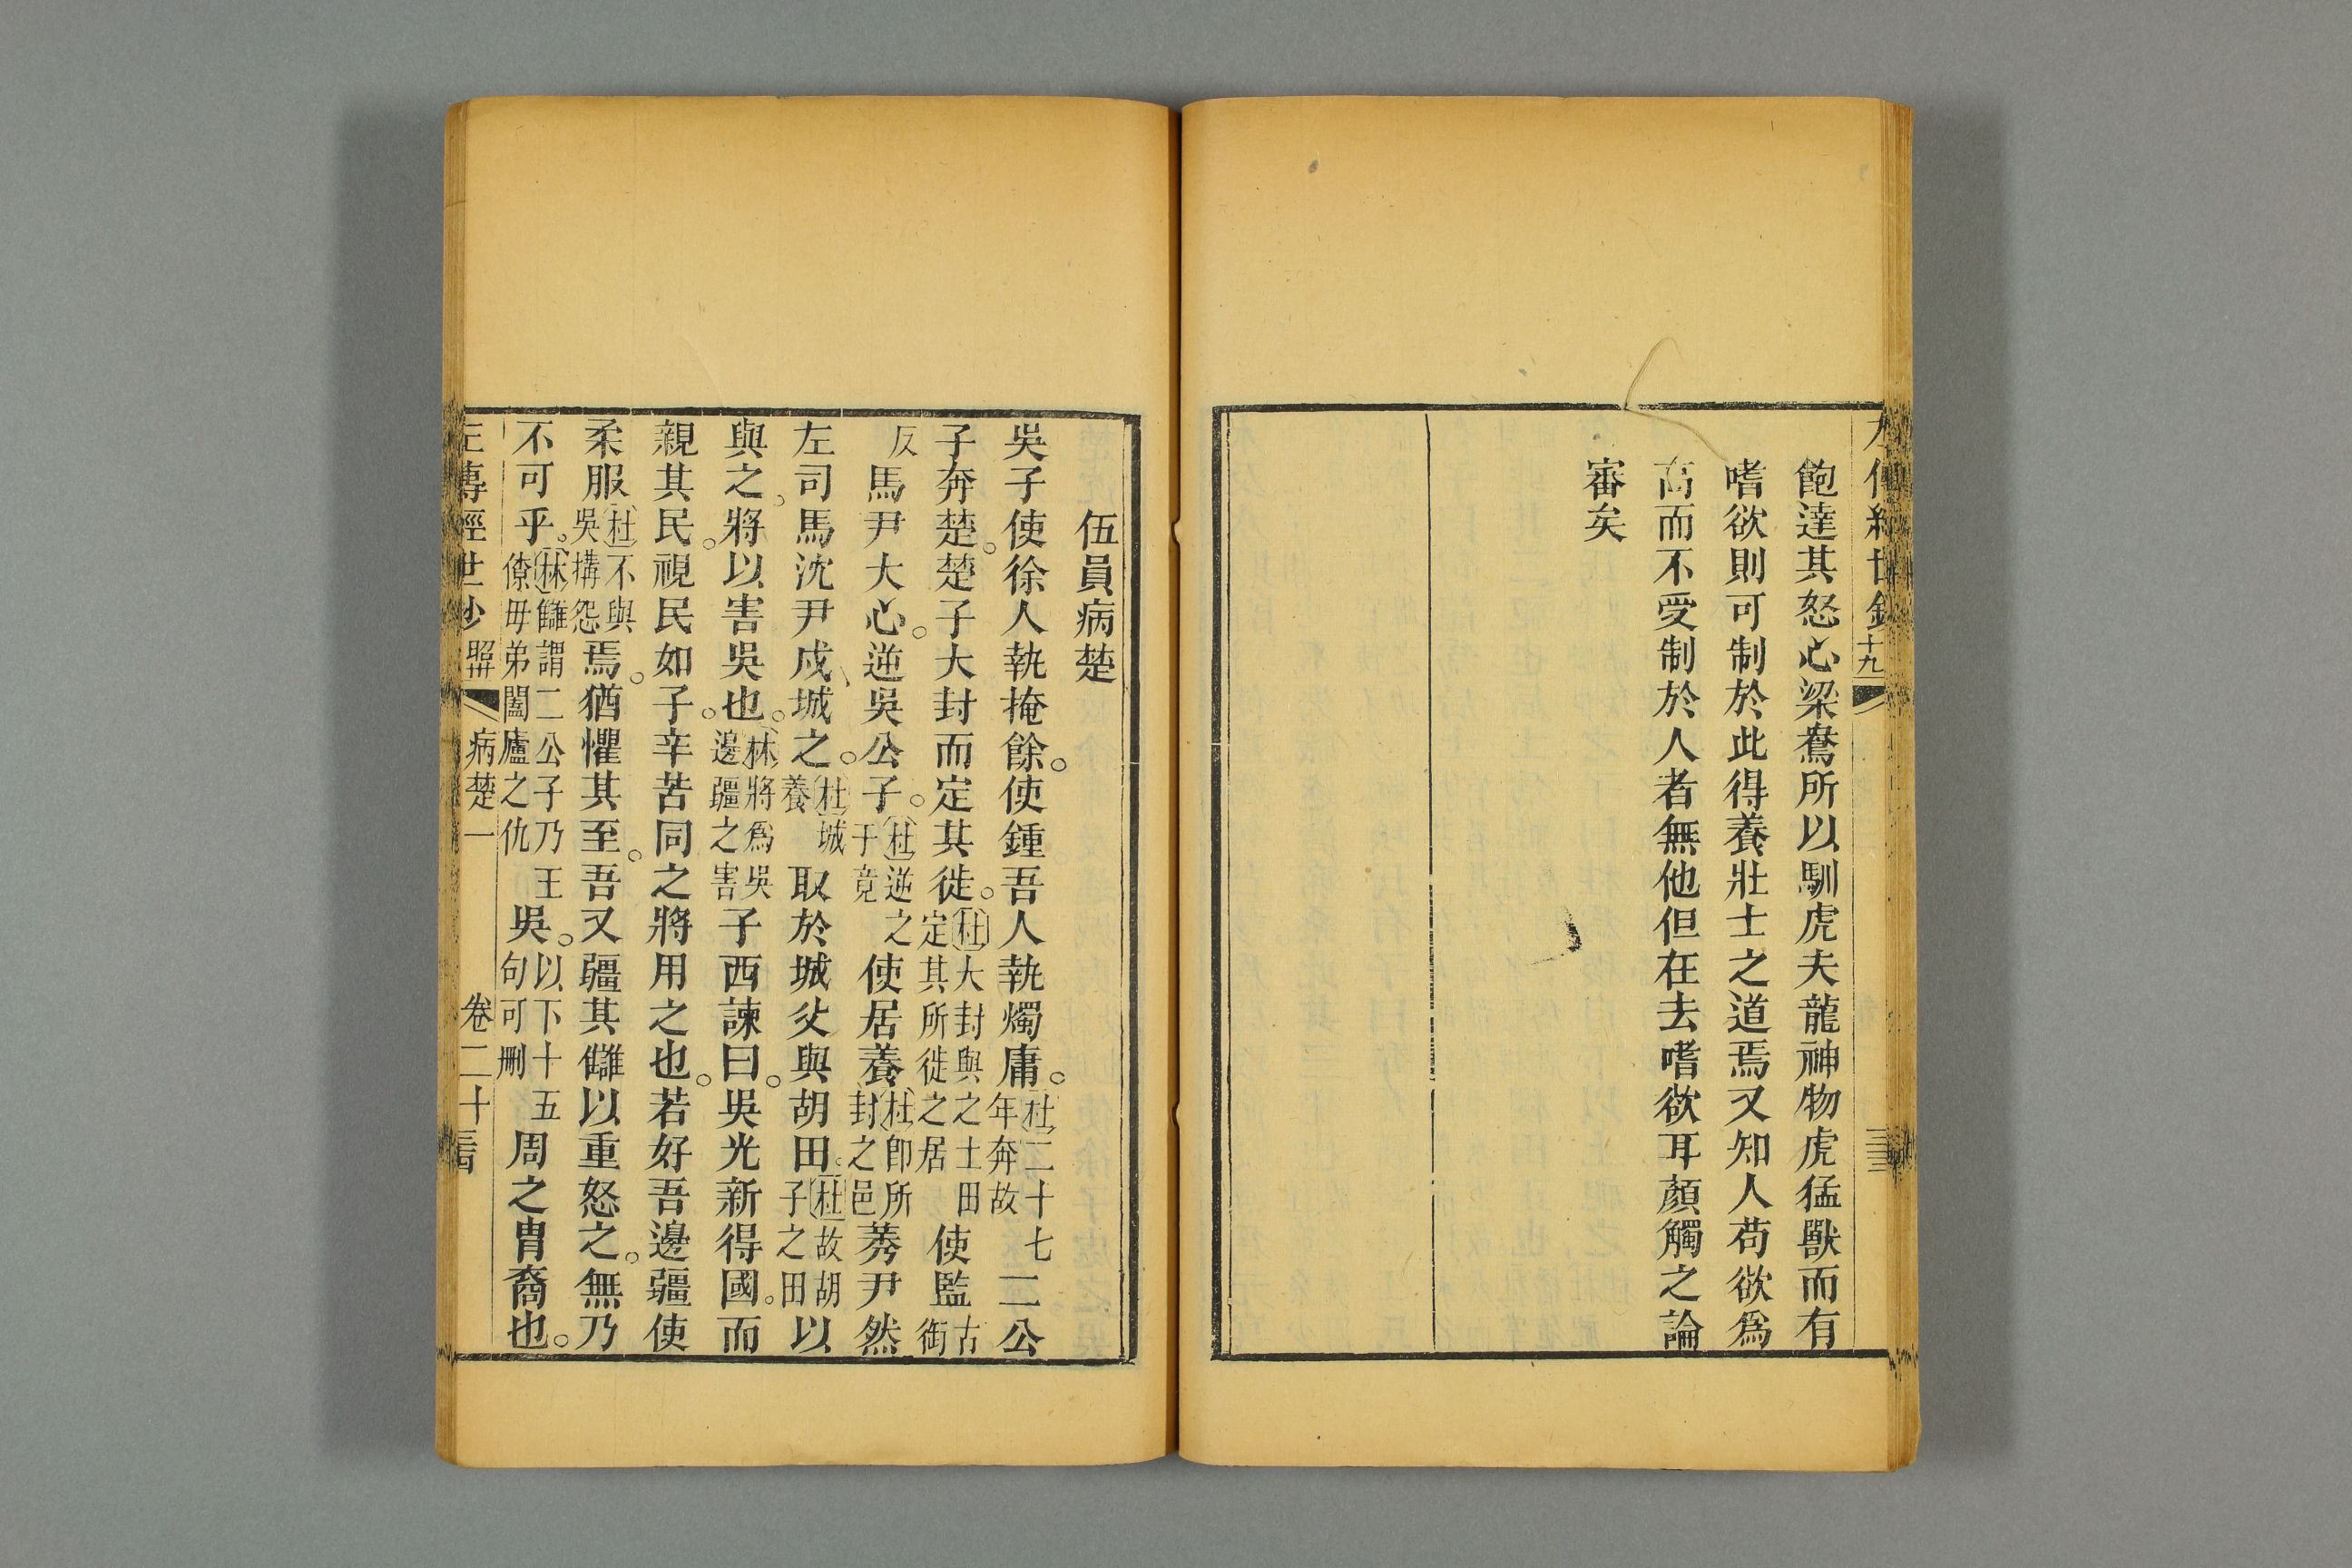 飽達其怒心梁鴦所以馴虎夫龍神物虎猛獸而有
嗜欲則可制於此得養壯士之道焉又知人苟欲爲
高而不受制於人者無他但在去嗜欲耳顏觸之論
審矣
伍員病楚
吳子使徐人執掩餘。使鍾吾人執燭庸。杜二十七年奔故二公
子奔楚。楚子大封而定其徙。杜大封與之土田定其所徙之居使監古銜
反馬尹大心。逆吳公子。杜逆之于竟使居養杜卽所封之邑莠尹然
左司馬沈尹戍、城之。杜城養取於城父與胡田。杜故胡子之田以
與之、將以害吳也。林將爲吳邊疆之害子西諫曰。吳光新得國。而
親其民。視民如子。辛苦同之將用之也。若好吾邊疆使
柔服杜不與吳搆怨焉。猶懼其至。吾又疆其讎以重怒之。無乃
不可乎。林讎謂二公子乃王僚毋弟闔廬之仇吳。以下十五句可刪周之冑裔也。
左傳經世鈔 昭 病楚一 卷二十